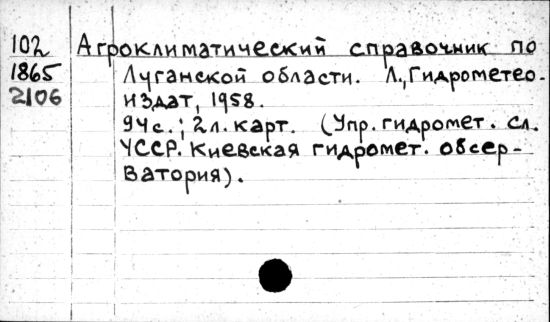 102 Агроклиматический справочник по
1865 Луганской области. Л., Гидрометео-
2106 издат, 1958.
94с.; 2л. карт. (Упр. гидромет. сл.
УССР. Киевская гидромет. обсер-
ватория).